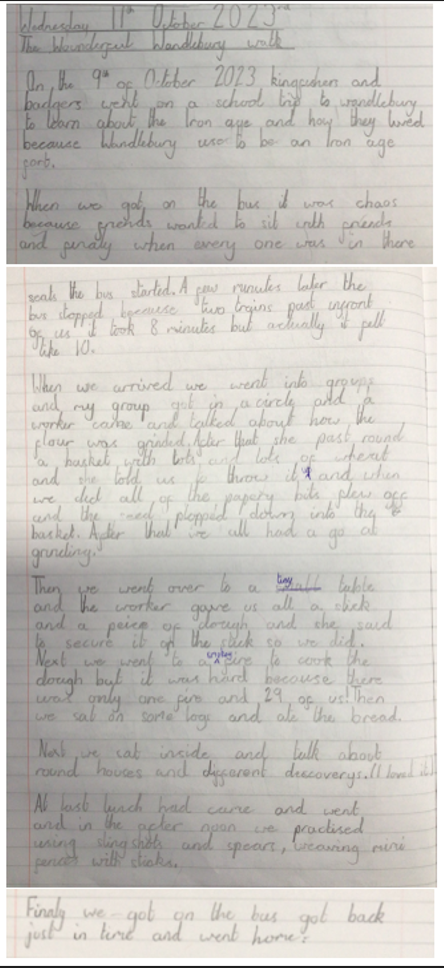 Wednesday 11th October 2023
The Wounderful Wandlebury walk
On the 9th of October 2023 kingfishers and
badgers went on a school trip to wandlebury
to learn about the Iron age and how they lived
because Wandlebury use to be an Iron age
fort.
When we got on the bus it was chaos
because friends wanted to sit with friends
and finaly when every one was in there
seats the bus started. A few minutes later the
bus stopped because two trains past infront
of us it took 8 minutes but actually it felt
like 10.
When we arrived we went into groups
and my group got in a circle and a
worker came and talked about how the
flour was grinded. After that she past round
a basket with lots and lots of wheat
and she told us to throw it and when
we did all of the papery bits flew off
and the seed plopped down into the
basket. After that we all had a go at
grinding.
Then we went over to a tiny table
and the worker gave us all a stick
and a peice of dough and she said
to secure it on the stick so we did.
Next we went to a fire to cook the
dough but it was hard because there
was only one fire and 29 of us! Then
we sat on some logs and ate the bread.
Next we sat inside and talk about
round houses and different discoverys. (I loved it)
At last lunch had came and went
and in the after noon we practised
using slingshots and spears, weaving mini
fences with sticks.
Finaly we got on the bus got back
just in time and went home.